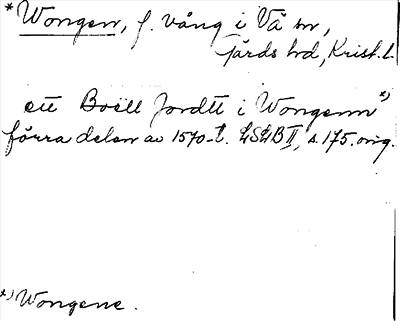 * Wongen, f. vång i Vä sn,
Gärds hd, Krist. l.
ett Boell Jordtt i Wongenn *)
förra delen av 1570-t. LSLB II, s. 175. orig.
*) Wongene.